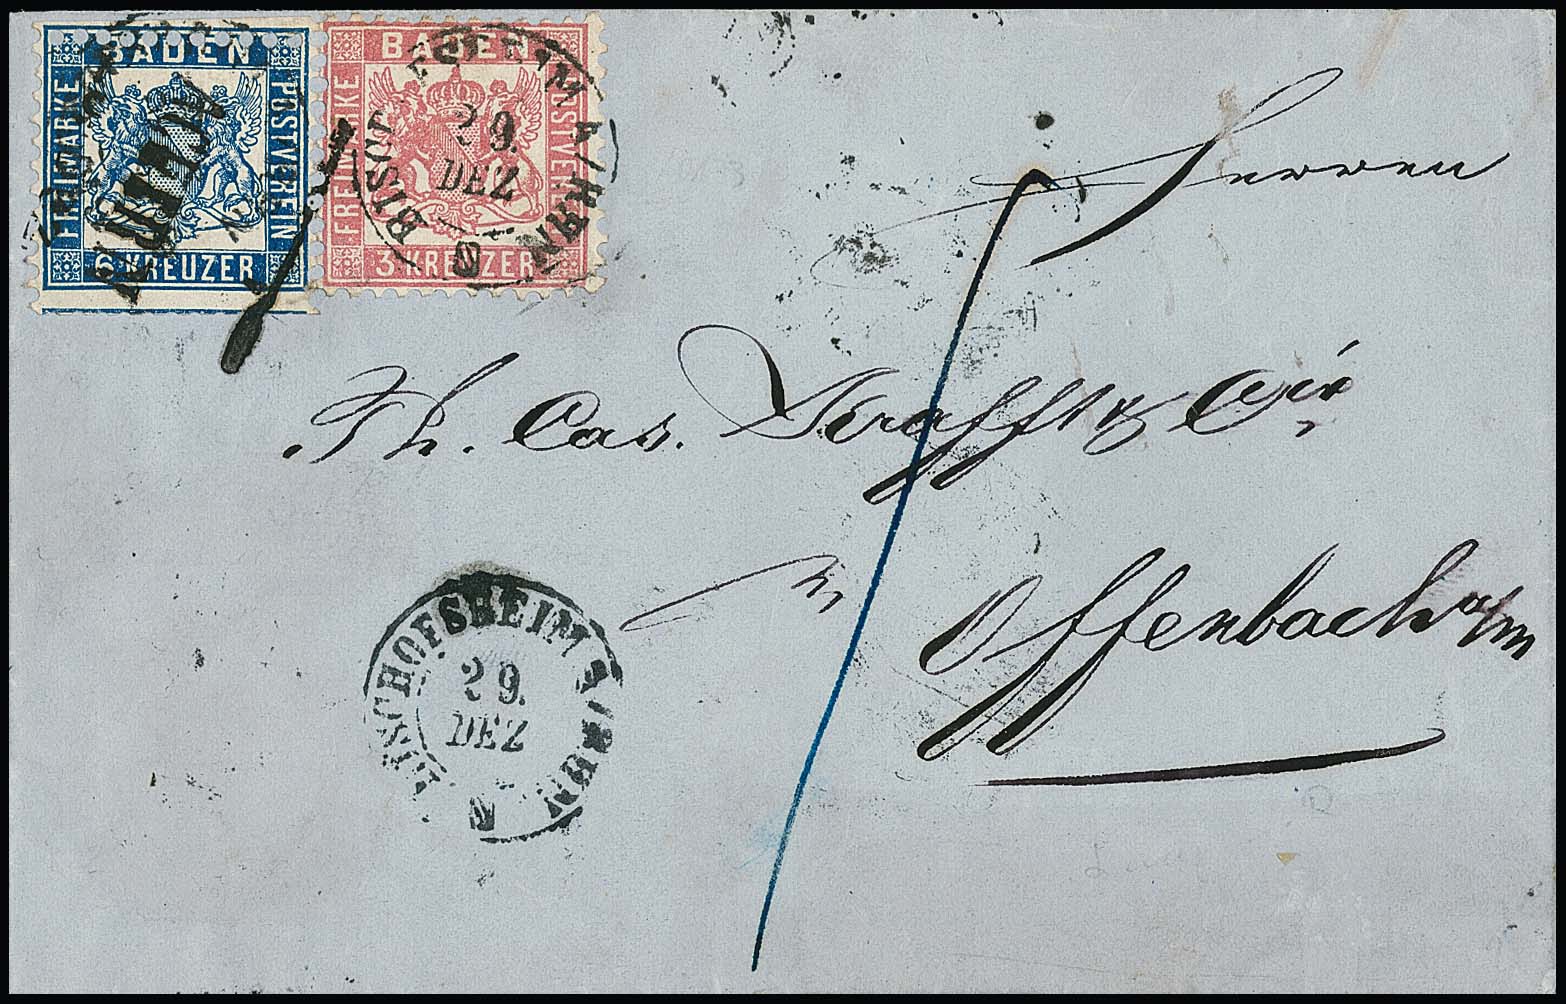 BADEN
FREIMARKE
POSTVEREIN
6 KREUZER
BADEN
FREIMARKE
POSTVEREIN
3 KREUZER
29.
DEZ
Herren
Th. Cas. Krafft &
Offenbach a/m
BISCHOFSHEIM A/RHN
29.
DEZ